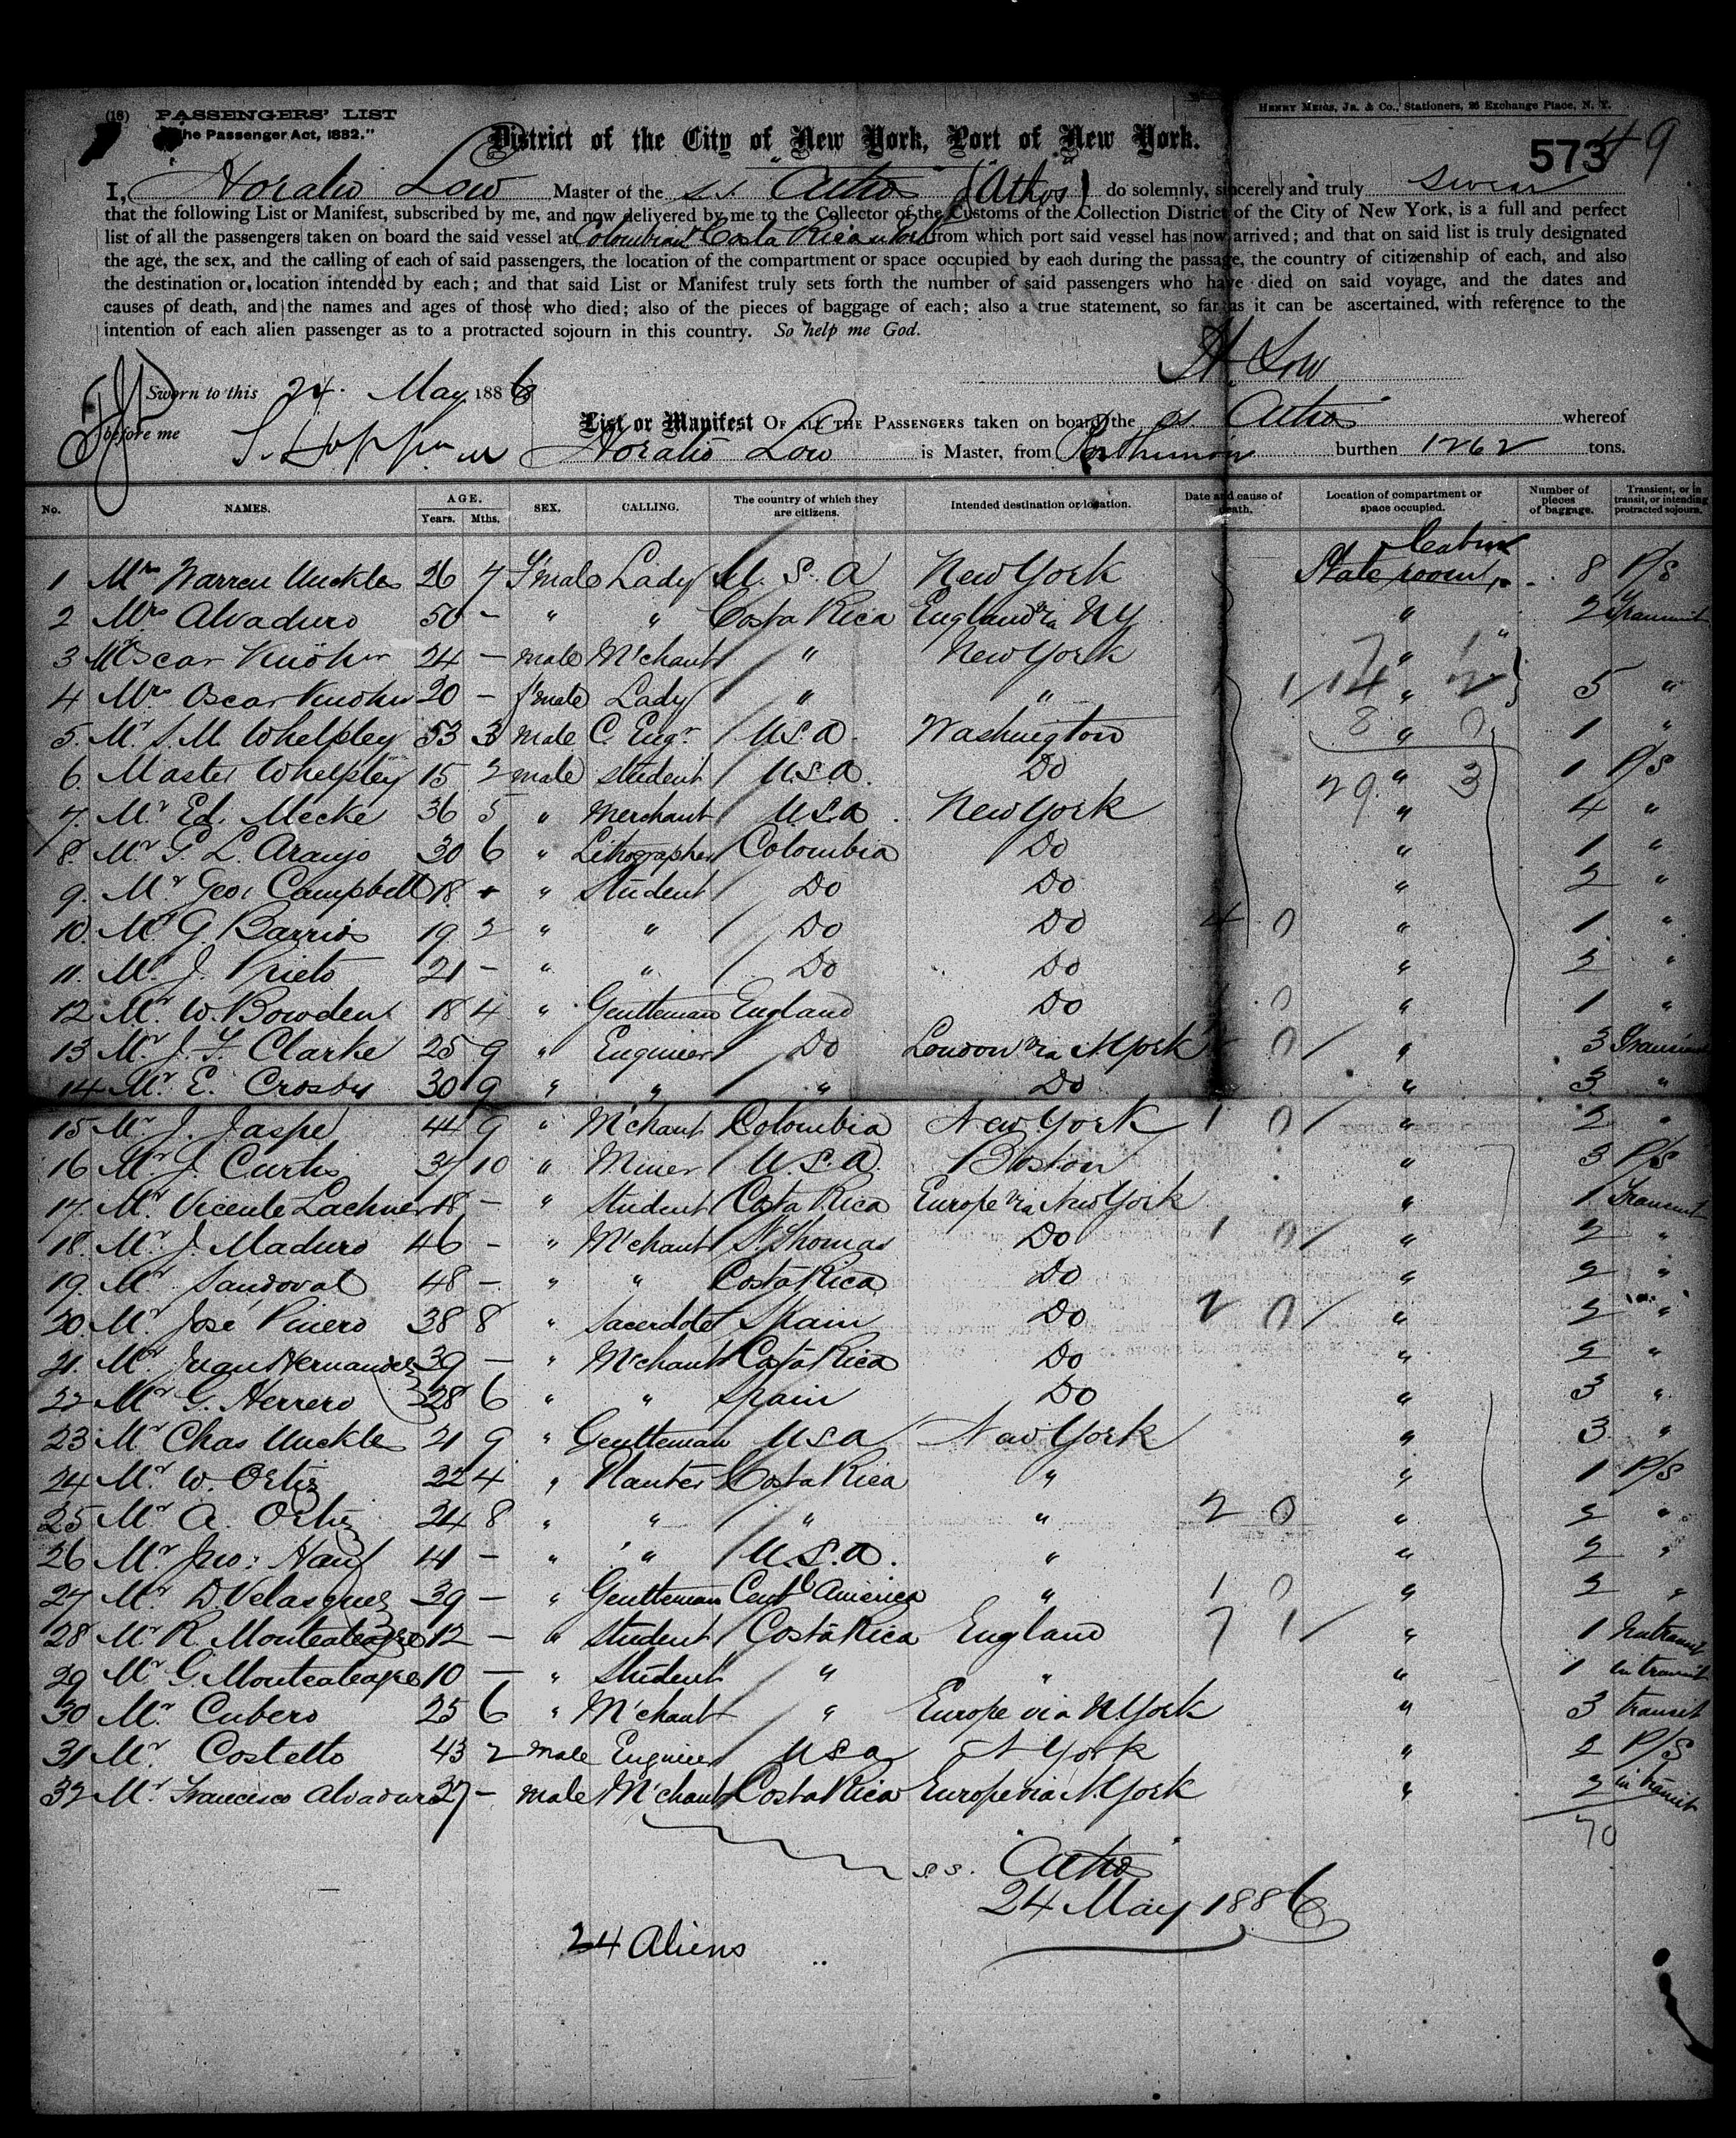 (18) PASSENGERS' LIST
HENRY MEIGS, JR. & CO., Stationers, 26 Exchange Place, N. Y.
"The Passenger Act, 1882."
District of the City of New York, Port of New York.
573 49
I, Horatio Low Master of the s.s. "Athos" (Athos) do solemnly, sincerely and truly swear
that the following List or Manifest, subscribed by me, and now delivered by me to the Collector of the Customs of the Collection District of the City of New York, is a full and perfect
list of all the passengers taken on board the said vessel at Colombian & Costa Rican Ports from which port said vessel has now arrived; and that on said list is truly designated
the age, the sex, and the calling of each of said passengers, the location of the compartment or space occupied by each during the passage, the country of citizenship of each, and also
the destination or location intended by each; and that said List or Manifest truly sets forth the number of said passengers who have died on said voyage, and the dates and
causes of death, and the names and ages of those who died; also of the pieces of baggage of each; also a true statement, so far as it can be ascertained, with reference to the
intention of each alien passenger as to a protracted sojourn in this country. So help me God.
H. Low
Sworn to this 24. May 1886
before me
List or Manifest OF ALL THE PASSENGERS taken on board the ss. Athos whereof
Horatio Low is Master, from burthen 1262 tons.
No. NAMES. AGE. Years. Mths. SEX. CALLING. The country of which they are citizens. Intended destination or location. Date and cause of death. Location of compartment or space occupied. Number of pieces of baggage. Transient, or in transit, or intending protracted sojourn.
Cabin
1 Mrs Warren Unckles 26 7 F'male Lady U.S.A New York State room 8 P/S
2 Mrs Alvaduro 50 - " " Costa Rica England via NY " 2 Transit
3 Mr Oscar Knohr 24 - male M'chant " New York "
4 Mrs Oscar Knohr 20 - f'male Lady " " " 5 "
5. Mr S. M. Whelpley 53 3 male C. Engr USA. Washington " 1 "
6. Master Whelpley 15 2 male student U.S.A. Do " 1 P/S
7. Mr Ed. Mecke 36 5 " Merchant U.S.A. New York " 4 "
8. Mr G. L. Araujo 30 6 " Lithographer Colombia Do " 1 "
9. Mr Geo. Campbell 18 - " Student Do Do " 2 "
10. Mr G. Barrios 19 2 " " Do Do " 1 "
11. Mr J. Prieto 21 - " " Do Do " 2 "
12 Mr W. Bowden 18 4 " Gentleman England Do " 1 "
13 Mr J. F. Clarke 25 9 " Engineer Do London via N York " 3 Transit
14 Mr E. Crosby 30 9 " " " Do " 3 "
15 Mr J. Jaspe 44 9 " M'chant Colombia New York " 2 "
16 Mr J. Curtis 37 10 " Miner U.S.A. Boston " 3 P/S
17. Mr Vicente Lachner 18 - " Student Costa Rica Europe via New York " 1 Transit
18. Mr J. Maduro 46 - " M'chant St. Thomas Do " 2 "
19. Mr Sandoval 48 - " " Costa Rica Do " 2 "
20. Mr José Pinero 38 8 " Sacerdote Spain Do " 2 "
21. Mr Juan Hernandez 39 - " M'chant Costa Rica Do " 2 "
22 Mr G. Herrero 28 6 " " Spain Do " 3 "
23 Mr Chas Unckles 21 9 " Gentleman USA New York " 3 "
24 Mr W. Ortiz 22 4 " Planter Costa Rica " " 1 P/S
25 Mr A. Ortiz 24 8 " " " " " 2 "
26 Mr Jno: 41 - " " U.S.A. " " 2 "
27 Mr D. Velasquez 39 - " Gentleman Centl America " " 2 "
28 Mr R. Montealegre 12 - " Student Costa Rica England " 1 Intransit
29 Mr G. Montealegre 10 - " Student " " " 1 in transit
30 Mr Cubero 25 6 " M'chant " Europe via N York " 3 transit
31 Mr Costello 43 2 male Engineer USA N York " 2 P/S
32 Mr Francisco Alvaduro 27 - male M'chant Costa Rica Europe via N. York " 2 in transit
70
s.s. "Athos"
24 May 1886
24 Aliens